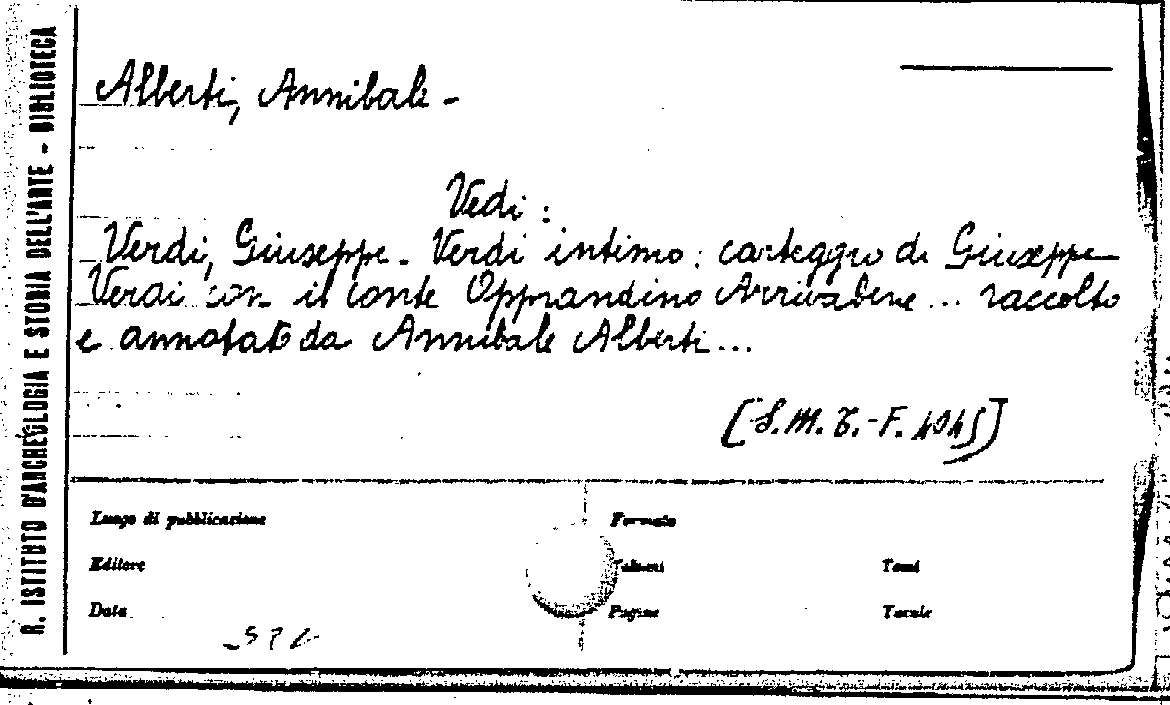 R. ISTITUTO D'ARCHEOLOGIA E STORIA DELL'ARTE - BIBLIOTECA
Alberti, Annibale -
Vedi:
Verdi, Giuseppe - Verdi intimo: carteggio di Giuseppe
Verdi con il conte Opprandino Arrivabene ... raccolto
e annotato da Annibale Alberti ...
Luogo di pubblicazione
Formato
Editore
Volumi
Tomi
Data
Pagine
Tavole